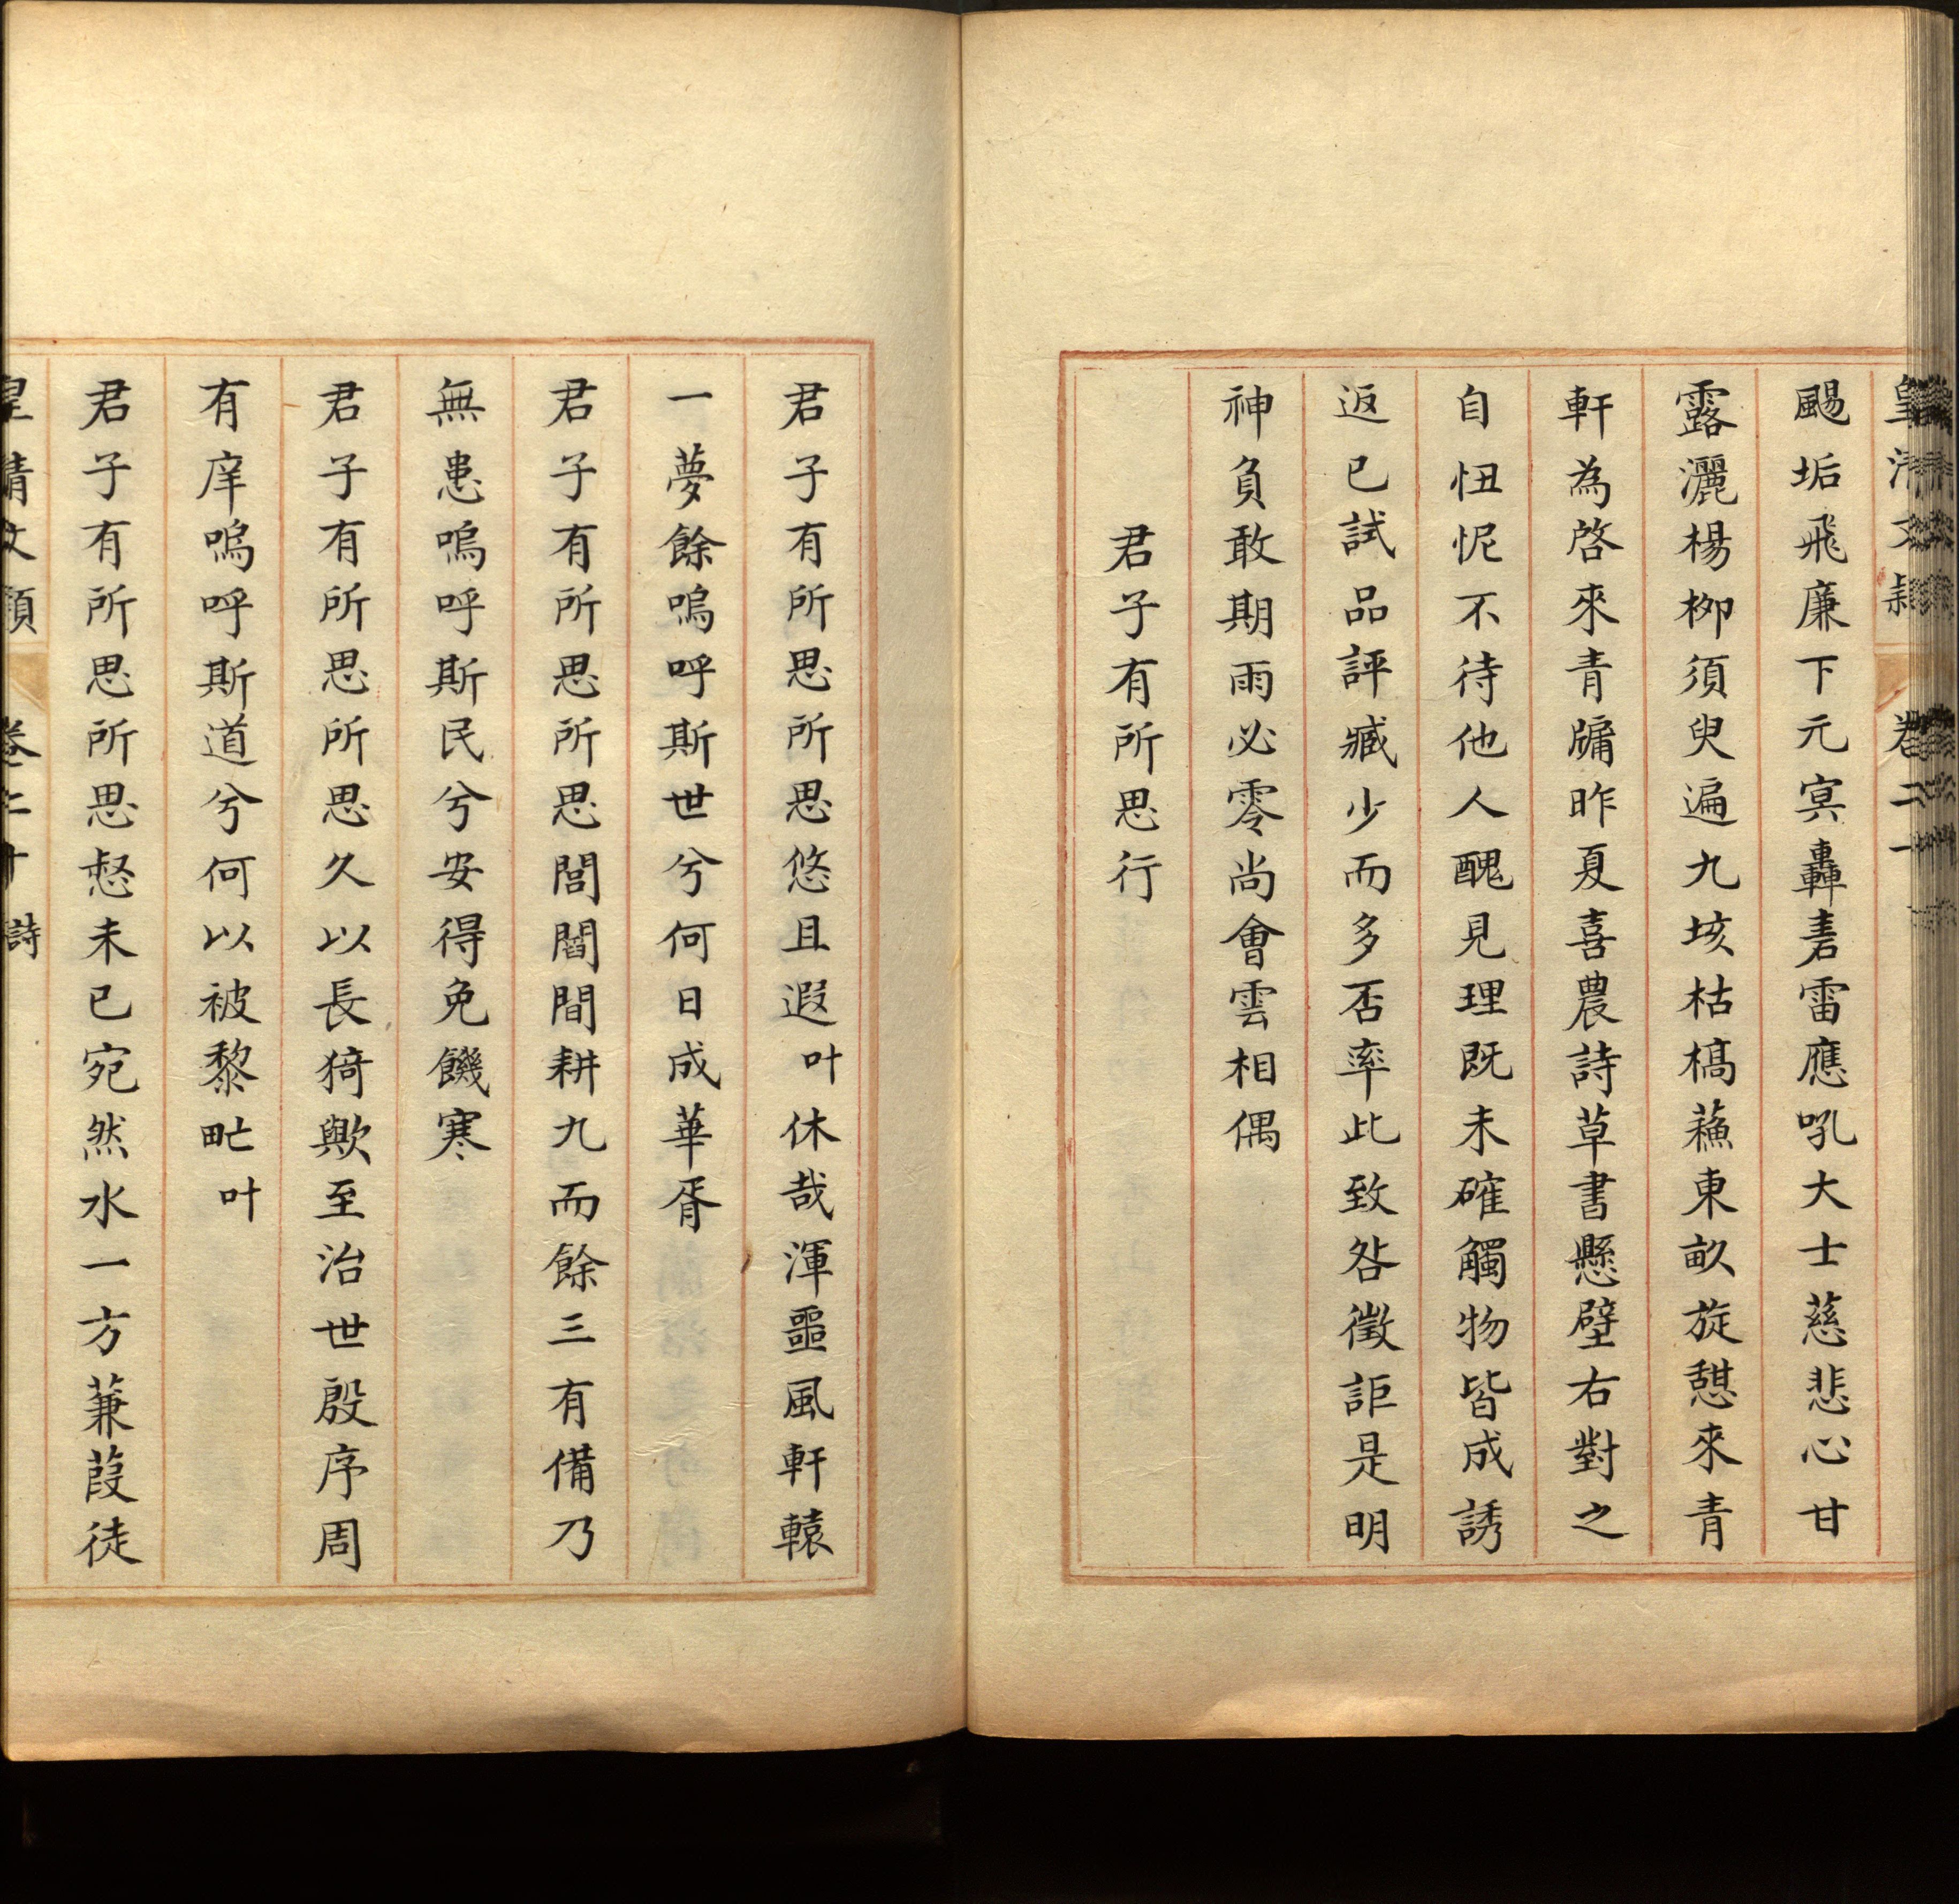 颺垢飛廉下元冥轟砉雷應吼大士慈悲心甘
露灑楊栁須臾遍九垓枯槁蘓東畝旋憇來青
軒為啓來青牖昨夏喜農詩草書懸壁右對之
自忸怩不待他人醜見理既未確觸物皆成誘
返已試品評臧少而多否率此致咎徵詎是明
神負敢期雨必零尚會雲相偶
君子有所思行
君子有所思所思悠且遐叶休哉渾噩風軒轅
一夢餘嗚呼斯世兮何日成華胥
君子有所思所思閭閻間耕九而餘三有備乃
無患嗚呼斯民兮安得免饑寒
君子有所思所思久以長猗歟至治世殷序周
有庠嗚呼斯道兮何以被黎甿叶
君子有所思所思惄未已宛然水一方蒹葭徒
皇清文穎 卷二十 詩